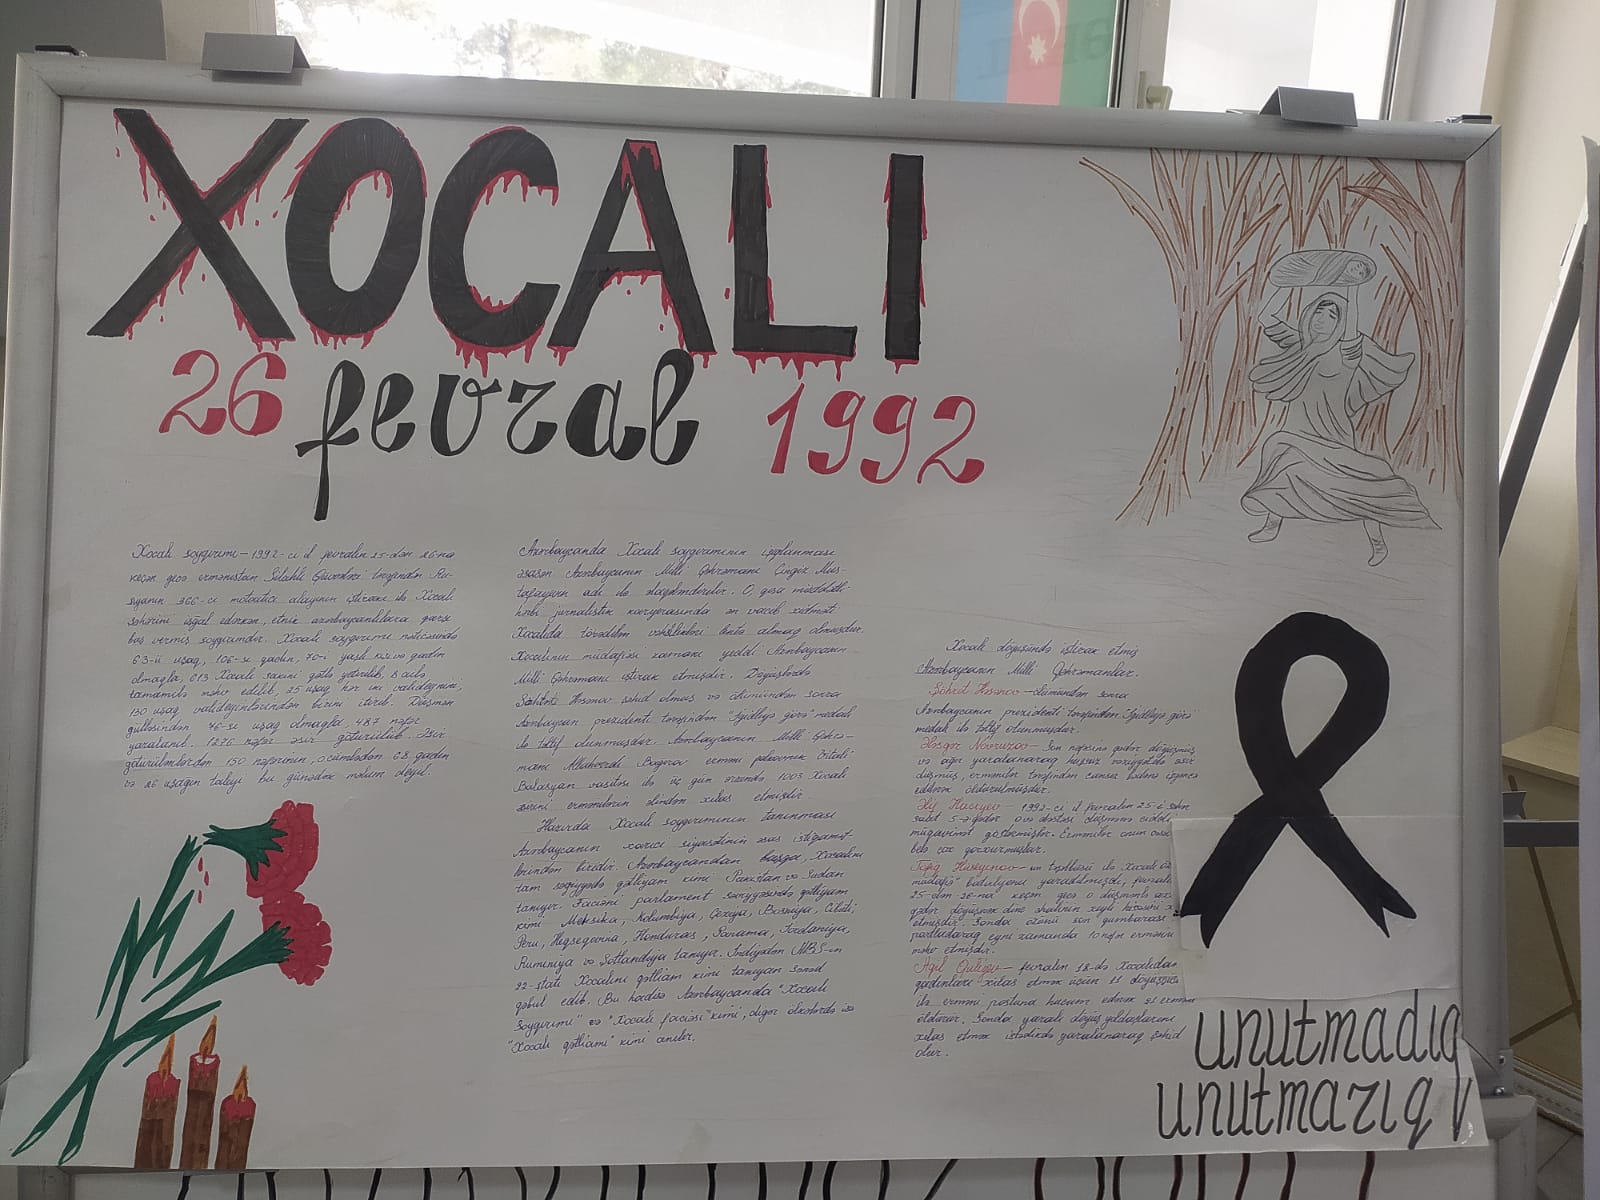 XOCALI
26 fevral 1992
Xocalı soyqırımı - 1992-ci il fevralın 25-dən 26-na
keçən gecə ermənistan Silahlı Qüvvələri tərəfindən Ru-
siyanın 366-cı motoatıcı alayının iştirakı ilə Xocalı
şəhərini işğal edərkən, etnik azərbaycanlılara qarşı
baş vermiş soyqırımdır. Xocalı soyqırımı nəticəsində
63-ü uşaq, 106-sı qadın, 70-i yaşlı kişi və qadın
olmaqla, 613 Xocalı sakini qətlə yetirilib, 8 ailə
tamamilə məhv edilib, 25 uşaq hər iki valideynini,
130 uşaq valideynlərindən birini itirib. Düşmən
gülləsindən 76-sı uşaq olmaqla, 487 nəfər
yaralanıb. 1276 nəfər əsir götürülüb. Əsir
götürülənlərdən 150 nəfərinin, o cümlədən 68 qadın
və 26 uşağın taleyi bu günədək məlum deyil.
Azərbaycanda Xocalı soyqırımının işıqlanması
əsasən Azərbaycanın Milli Qəhrəmanı Çingiz Mus-
tafayevin adı ilə əlaqələndirilir. O, qısa müddətli
hərbi jurnalistik karyerasında ən vacib xidməti
Xocalıda törədilən vəhşilikləri lentə almaq olmuşdur.
Xocalının müdafiəsi zamanı yeddi Azərbaycanın
Milli Qəhrəmanı iştirak etmişdir. Döyüşlərdə
Şöhrət Həsənov şəhid olmuş və ölümündən sonra
Azərbaycan prezidenti tərəfindən "İgidliyə görə" medalı
ilə təltif olunmuşdur. Azərbaycanın Milli Qəhrə-
manı Allahverdi Bağırov erməni polkovnik Vitali
Balasyan vasitəsi ilə üç gün ərzində 1003 Xocalı
əsirini ermənilərin əlindən xilas etmişdir.
Hazırda Xocalı soyqırımının tanınması
Azərbaycanın xarici siyasətinin əsas istiqamət
lərindən biridir. Azərbaycandan başqa, Xocalını
tam səviyyədə qətliyam kimi Pakistan və Sudan
tanıyır. Faciəni parlament səviyyəsində qətliyam
kimi Meksika, Kolumbiya, Çexiya, Bosniya, Cibuti,
Peru, Heqseqovina, Honduras, Panama, İordaniya,
Ruminiya və Şotlandiya tanıyır. İndiyədən ABŞ-ın
22-ştatı Xocalını qətliam kimi tanıyan sənəd
qəbul edib. Bu hadisə Azərbaycanda "Xocalı
soyqırımı" və "Xocalı faciəsi" kimi, digər ölkələrdə isə
"Xocalı qətliamı" kimi anılır.
Xocalı döyüşündə iştirak etmiş
Azərbaycanın Milli Qəhrəmanlar.
Şöhrət Həsənov - ölümündən sonra
Azərbaycanın prezidenti tərəfindən "İgidliyə görə"
medalı ilə təltif olunmuşdur.
Əsgər Novruzov - Son nəfəsinə qədər döyüşmüş
və ağır yaralanaraq huşsuz vəziyyətdə əsir
düşmüş, ermənilər tərəfindən cansız bədəni işgəncə
edilərək öldürülmüşdür.
Əlif Hacıyev - 1992-ci il fevralın 25-i səhər
saat 5-ə qədər öz dəstəsi düşmənə ciddi
müqavimət göstərmişlər. Ermənilər onun
belə çox qorxurmuşlar.
Tofiq Hüseynov - un təşəbbüsü ilə Xocalı
müdafiə" batalyonu yaradılmışdı, fevralın
25-dən 26-na keçən gecə o düşmənlə
qədər döyüşərək dinc əhalinin xeyli hissəsini
etmişdir. Sonda özünü son qumbarası
partladaraq eyni zamanda 10 nəfər ermənini
məhv etmişdir.
Aqil Quliyev - fevralın 18-də Xocalıdan
qadınları xilas etmək üçün 11 döyüşçü
ilə erməni postuna hücum edərək 21 erməni
öldürür. Sonda yaralı döyüş yoldaşlarını
xilas etmək istədikdə yaralanaraq şəhid
olur.
unutmadıq
unutmarıq